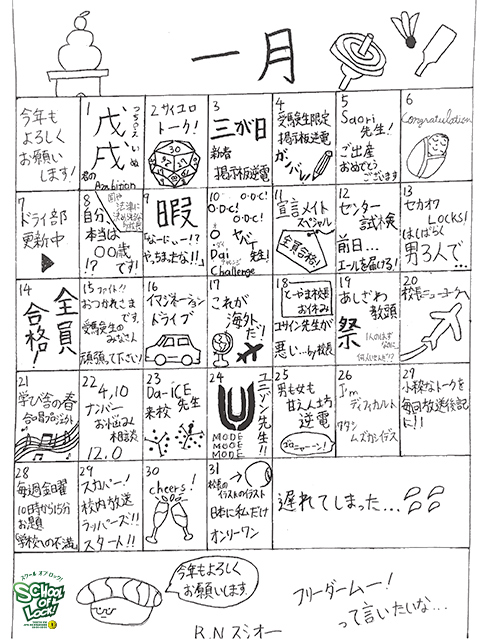 一月
今年も
よろしく
お願い
します!
1
戊
戌
つちのえいぬ
君の
Ambition
2 サイコロ
トーク!
30
3
三が日
新春
掲示板逆電
4
受験生限定
掲示板逆電
ガバ
5
Saori
先生!
ご出産
おめでとう
ございます
6
Congratulation
7
ドライ部
更新中
8
自分、
本当は
〇〇歳
!?です!
9
暇
「なーにぃー!?
やっちまったな!!」
10
O·D·C!
O·D·C!
O·D·C!
ヤバイ
Dai
先生!
Challenge
11
宣言メイト
スペシャル
全員合格!
12
センター
試験
前日…
エールを届ける!
13
セカオワ
LOCKS!
はしばらく
男3人で…
14
全員
合格!
15 ファイト!!
おつかれさま
です。
受験生の
みなさん
頑張って下さい!
16
イマジネーション
ドライブ
17
これが
海外だ!
18
とーやま校長
お休み
ユウイン先生が
悪い…by校長
19
あしざわ
教頭
祭
20
校長ニューヨークへ
21
学び舎の春
合唱プロジェクト
22
4,10
ナンバー
お悩み
相談
12.0
23
Da-iCE
来校 先生
24
ユニゾン先生!!
MODE
MODE
MODE
25
男も女も
甘えん坊
逆電
ゴロニャーン!
26
I'm
ディフィカルト
ワタシ
ムズカシイデス
29
小粋なトークを
毎回放送後記
に!!
28
毎週金曜
10時から15分
お題
学校への不満
29
スカパー!
校内放送
ラッパーズ!!
スタート!!
30
cheers!
31
校長の
イラストのイラスト
日本に私だけ
オンリーワン
遅れてしまった…
スクール オブ ロック!
SCHOOL
OF
LOCK!
今年もよろしく
お願いします。
R.N スシオー
フリーダムー!
って言いたいな…